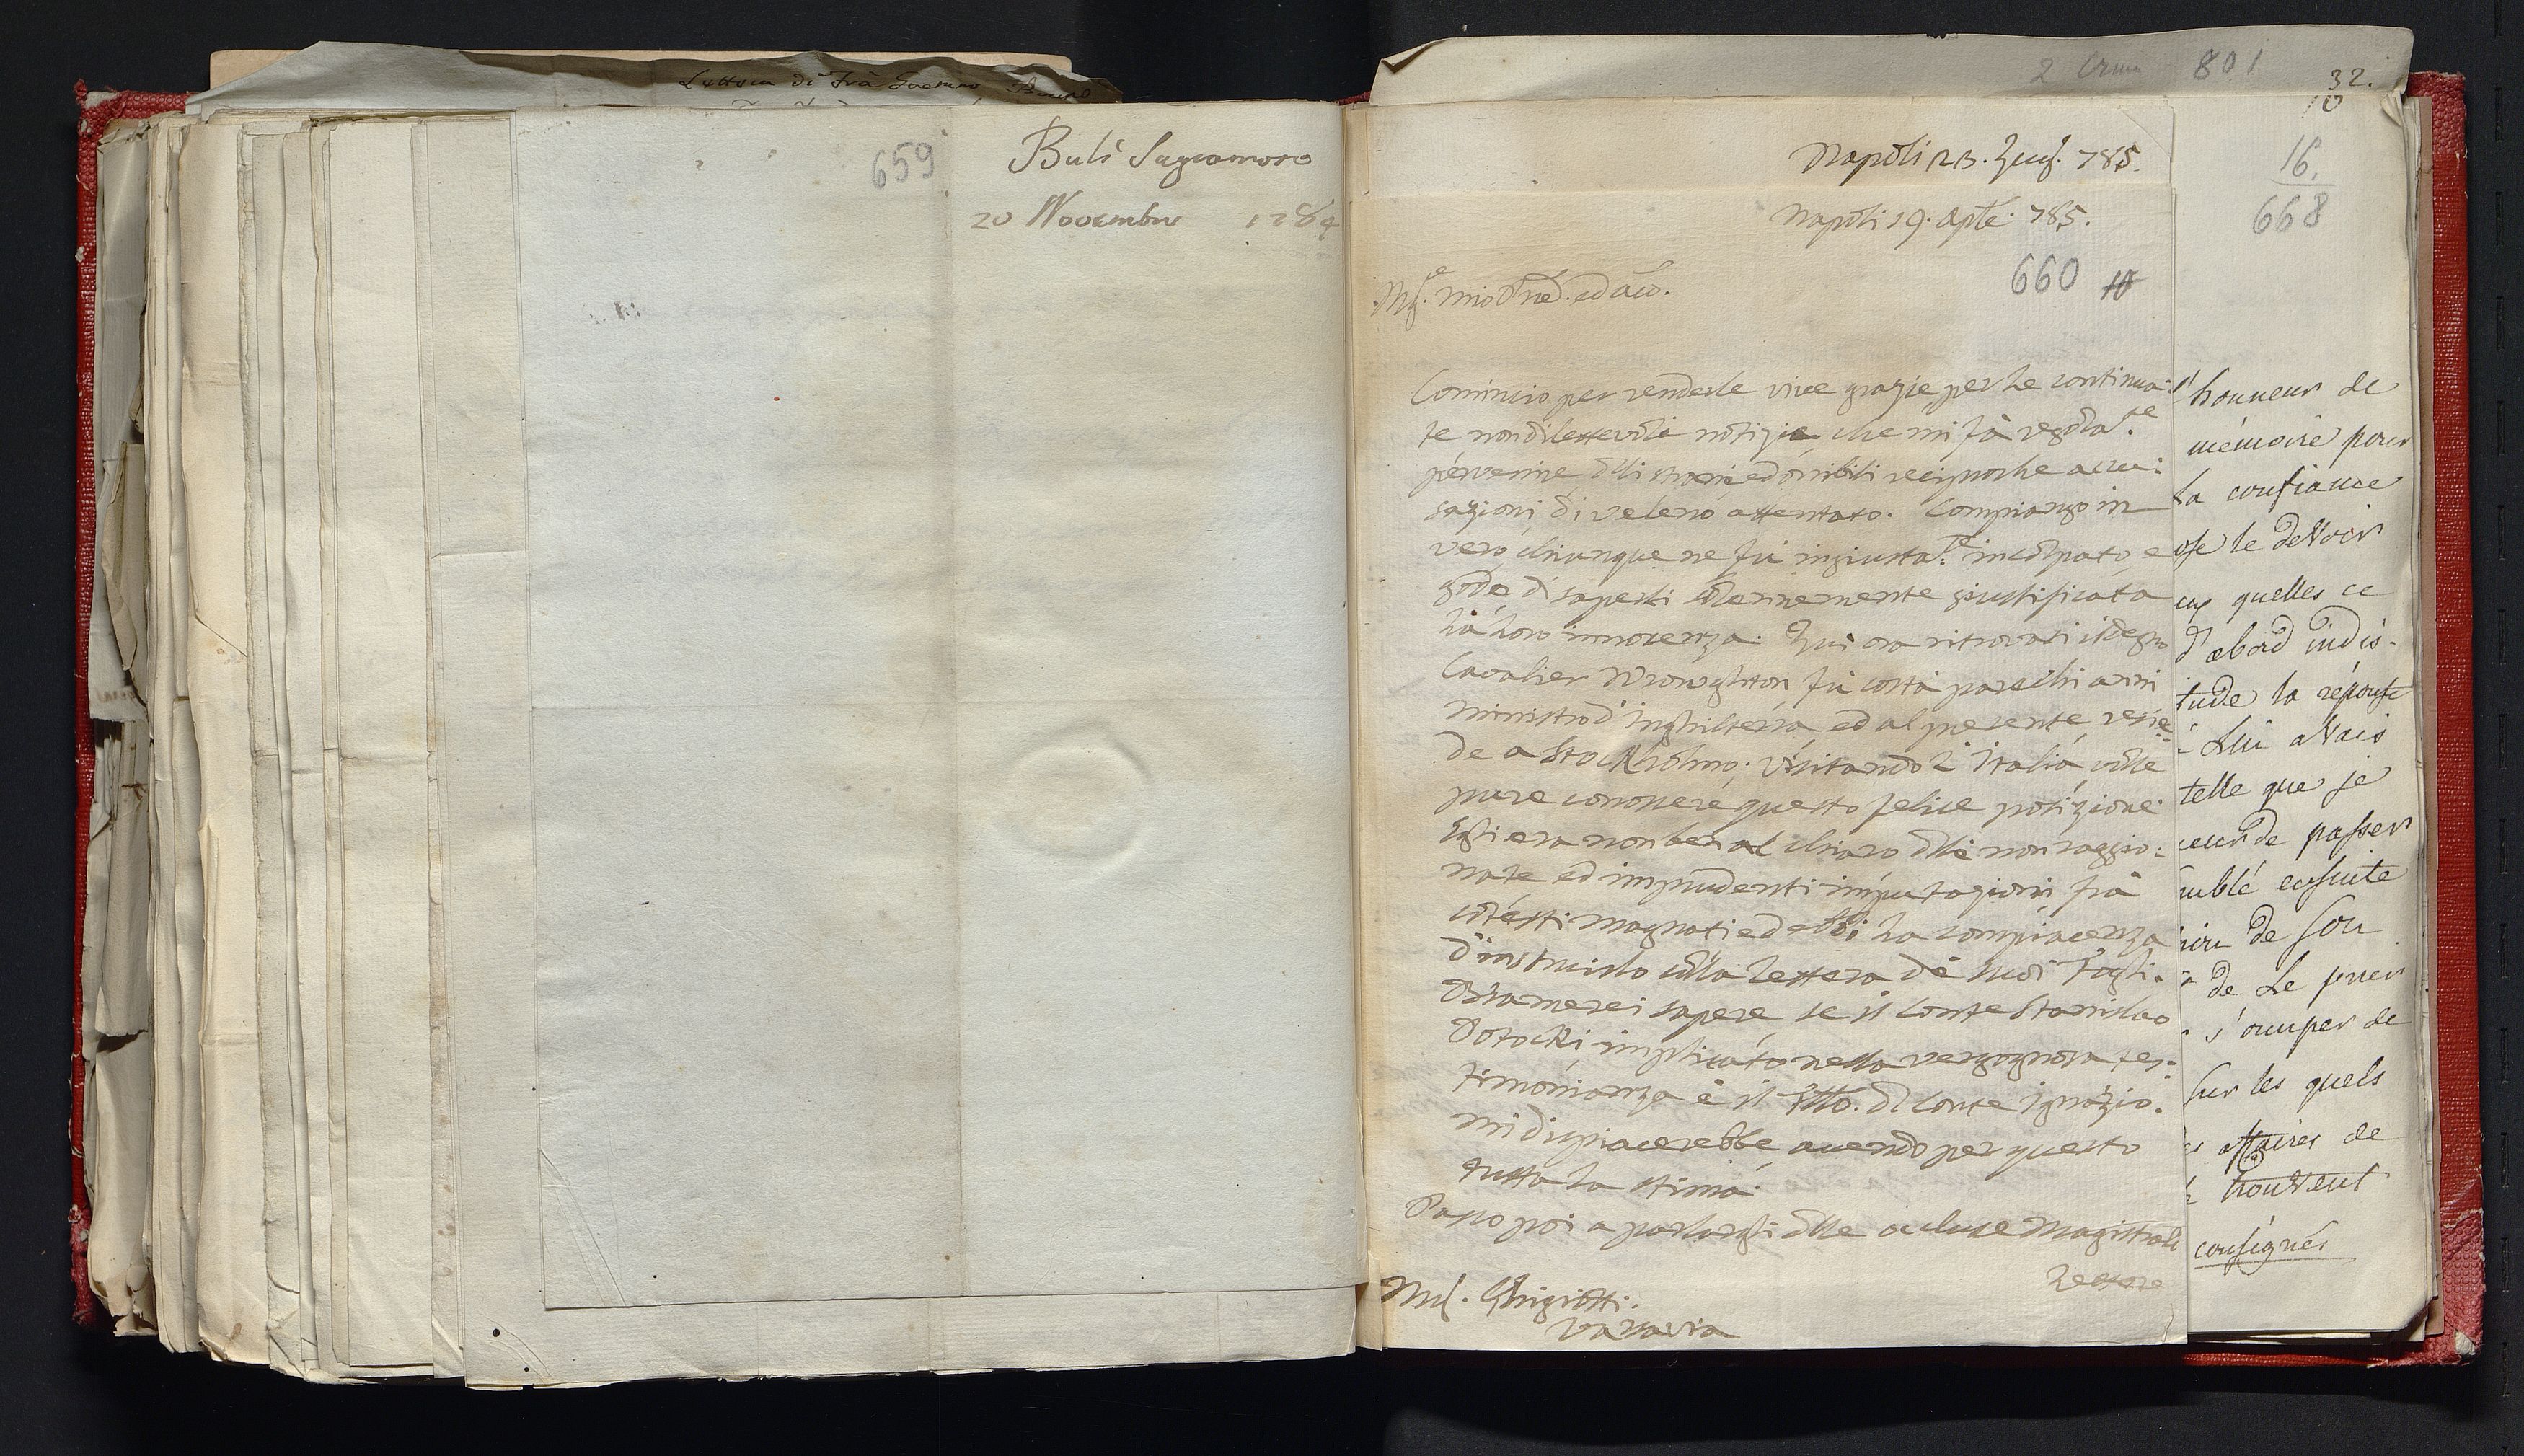 Lettera di Frà
659
Bali Sagramoso
20 Novembre 1784
2 801
32.
10
16.
668
Napoli 23. Zug. 785.
Napoli 19. Aple. 785.
660 10
Comincio per renderle vive grazie per le continua:
te non dilettevoli notizie che mi fà regola.te
pervenire delli strani ed orribili reciproche accu:
sazioni di veleno attentato. Compiango in
vero chiunque ne fù ingiusta.te incolpato, e
godo di saperli solennemente giustificata
la loro innocenza. Qui ora ritrovasi il Degno
Cavalier Wroughton fù costà parecchi anni
ministro d'Inghilterra, ed al presente resie:
de a Stockholmo. Visitando l'Italia, volle
pure conoscere questo felice posizione.
Egli era non ben al chiaro delle non raggio:
nate ed imprudenti imputazioni frà
cotesti magnati ed ebbi la compiacenza
d'instruirlo colla lettera de suoi Fogli.
Bramerei sapere se il Conte Stanislao
Potocki implicato nella vergognosa tes:
timonianza è il Fllo. del Conte Ignazio.
mi dispiacerebbe avendo per questo
tutta la stima.
Passo poi a parlargli delle accluse Magistrali
Lettere
Ghigiotti.
Varsavia
l'honneur de
mémoire pour
la confiance
ose le devoir
quelles ce
d'abord indis-
tude la réponse
Lui avais
telle que je
de passer
ensuite
de son
de Le prier
s'occuper de
sur les quels
affaires de
trouvent
consignés